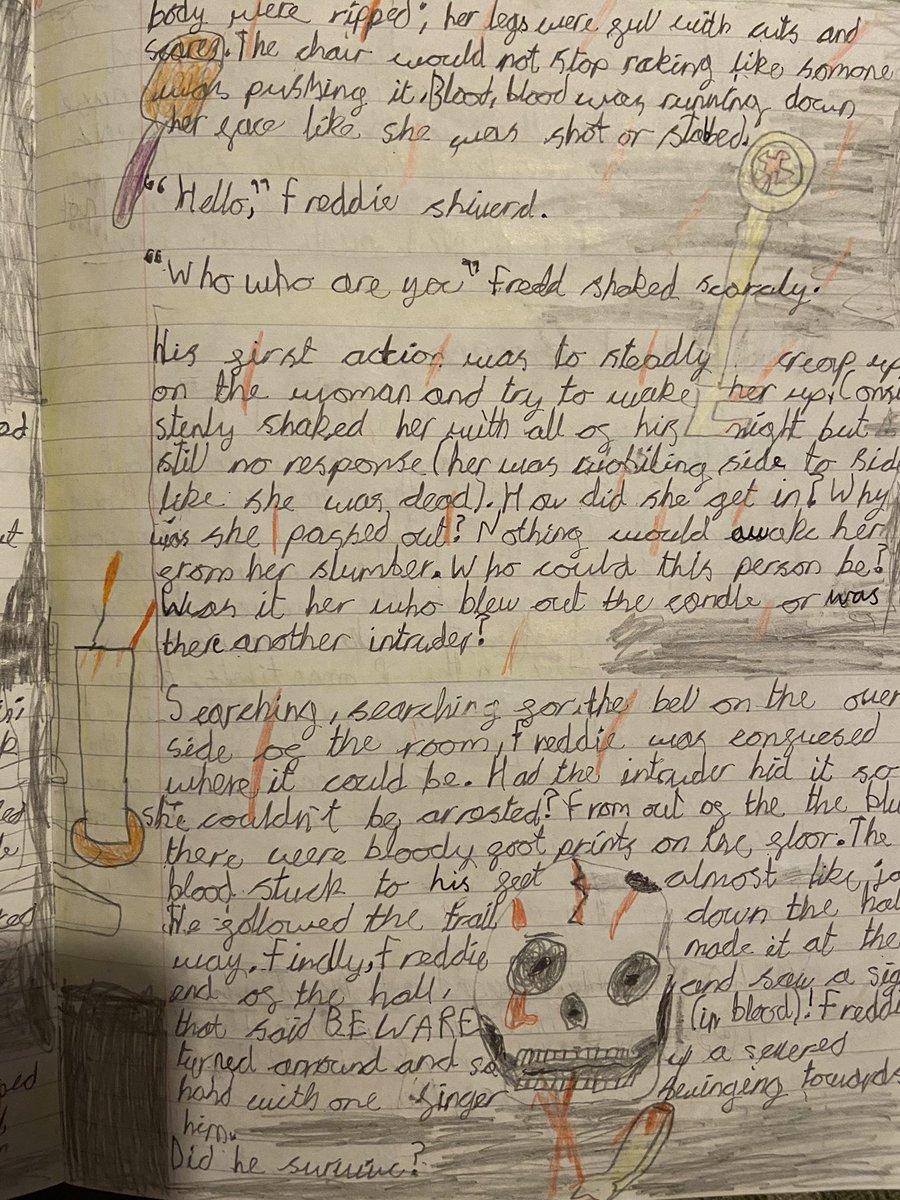 body were ripped; her legs were full with cuts and
scares. The chair would not stop raking like somone
was pushing it. Blood, blood was running down
her face like she was shot or stabed.
"Hello," freddie shiverd.
"Who who are you" Fredd shaked scaraly.
His first action was to steadly creap up
on the woman and try to wake her up. Consi
stenly shaked her with all of his might but
still no response (her was side to sid
like she was dead). How did she get in? Why
was she passed out? Nothing would awake her
from her slumber. Who could this person be?
Was it her who blew out the candle or was
there another intruder?
Searching, searching for the bell on the over
side of the room, freddie was confuesed
where it could be. Had the intruder hid it so
she couldn't be arrested? From out of the the blu
there were bloody foot prints on the floor. The
blood stuck to his feet almost like ja
He followed the trail down the hal
way. Findly, freddie made it at the
end of the hall, and saw a sig
that said BEWARE (in blood)! Freddi
turned arround and sa a severed
hand with one finger swinging towards
him.
Did he survive?